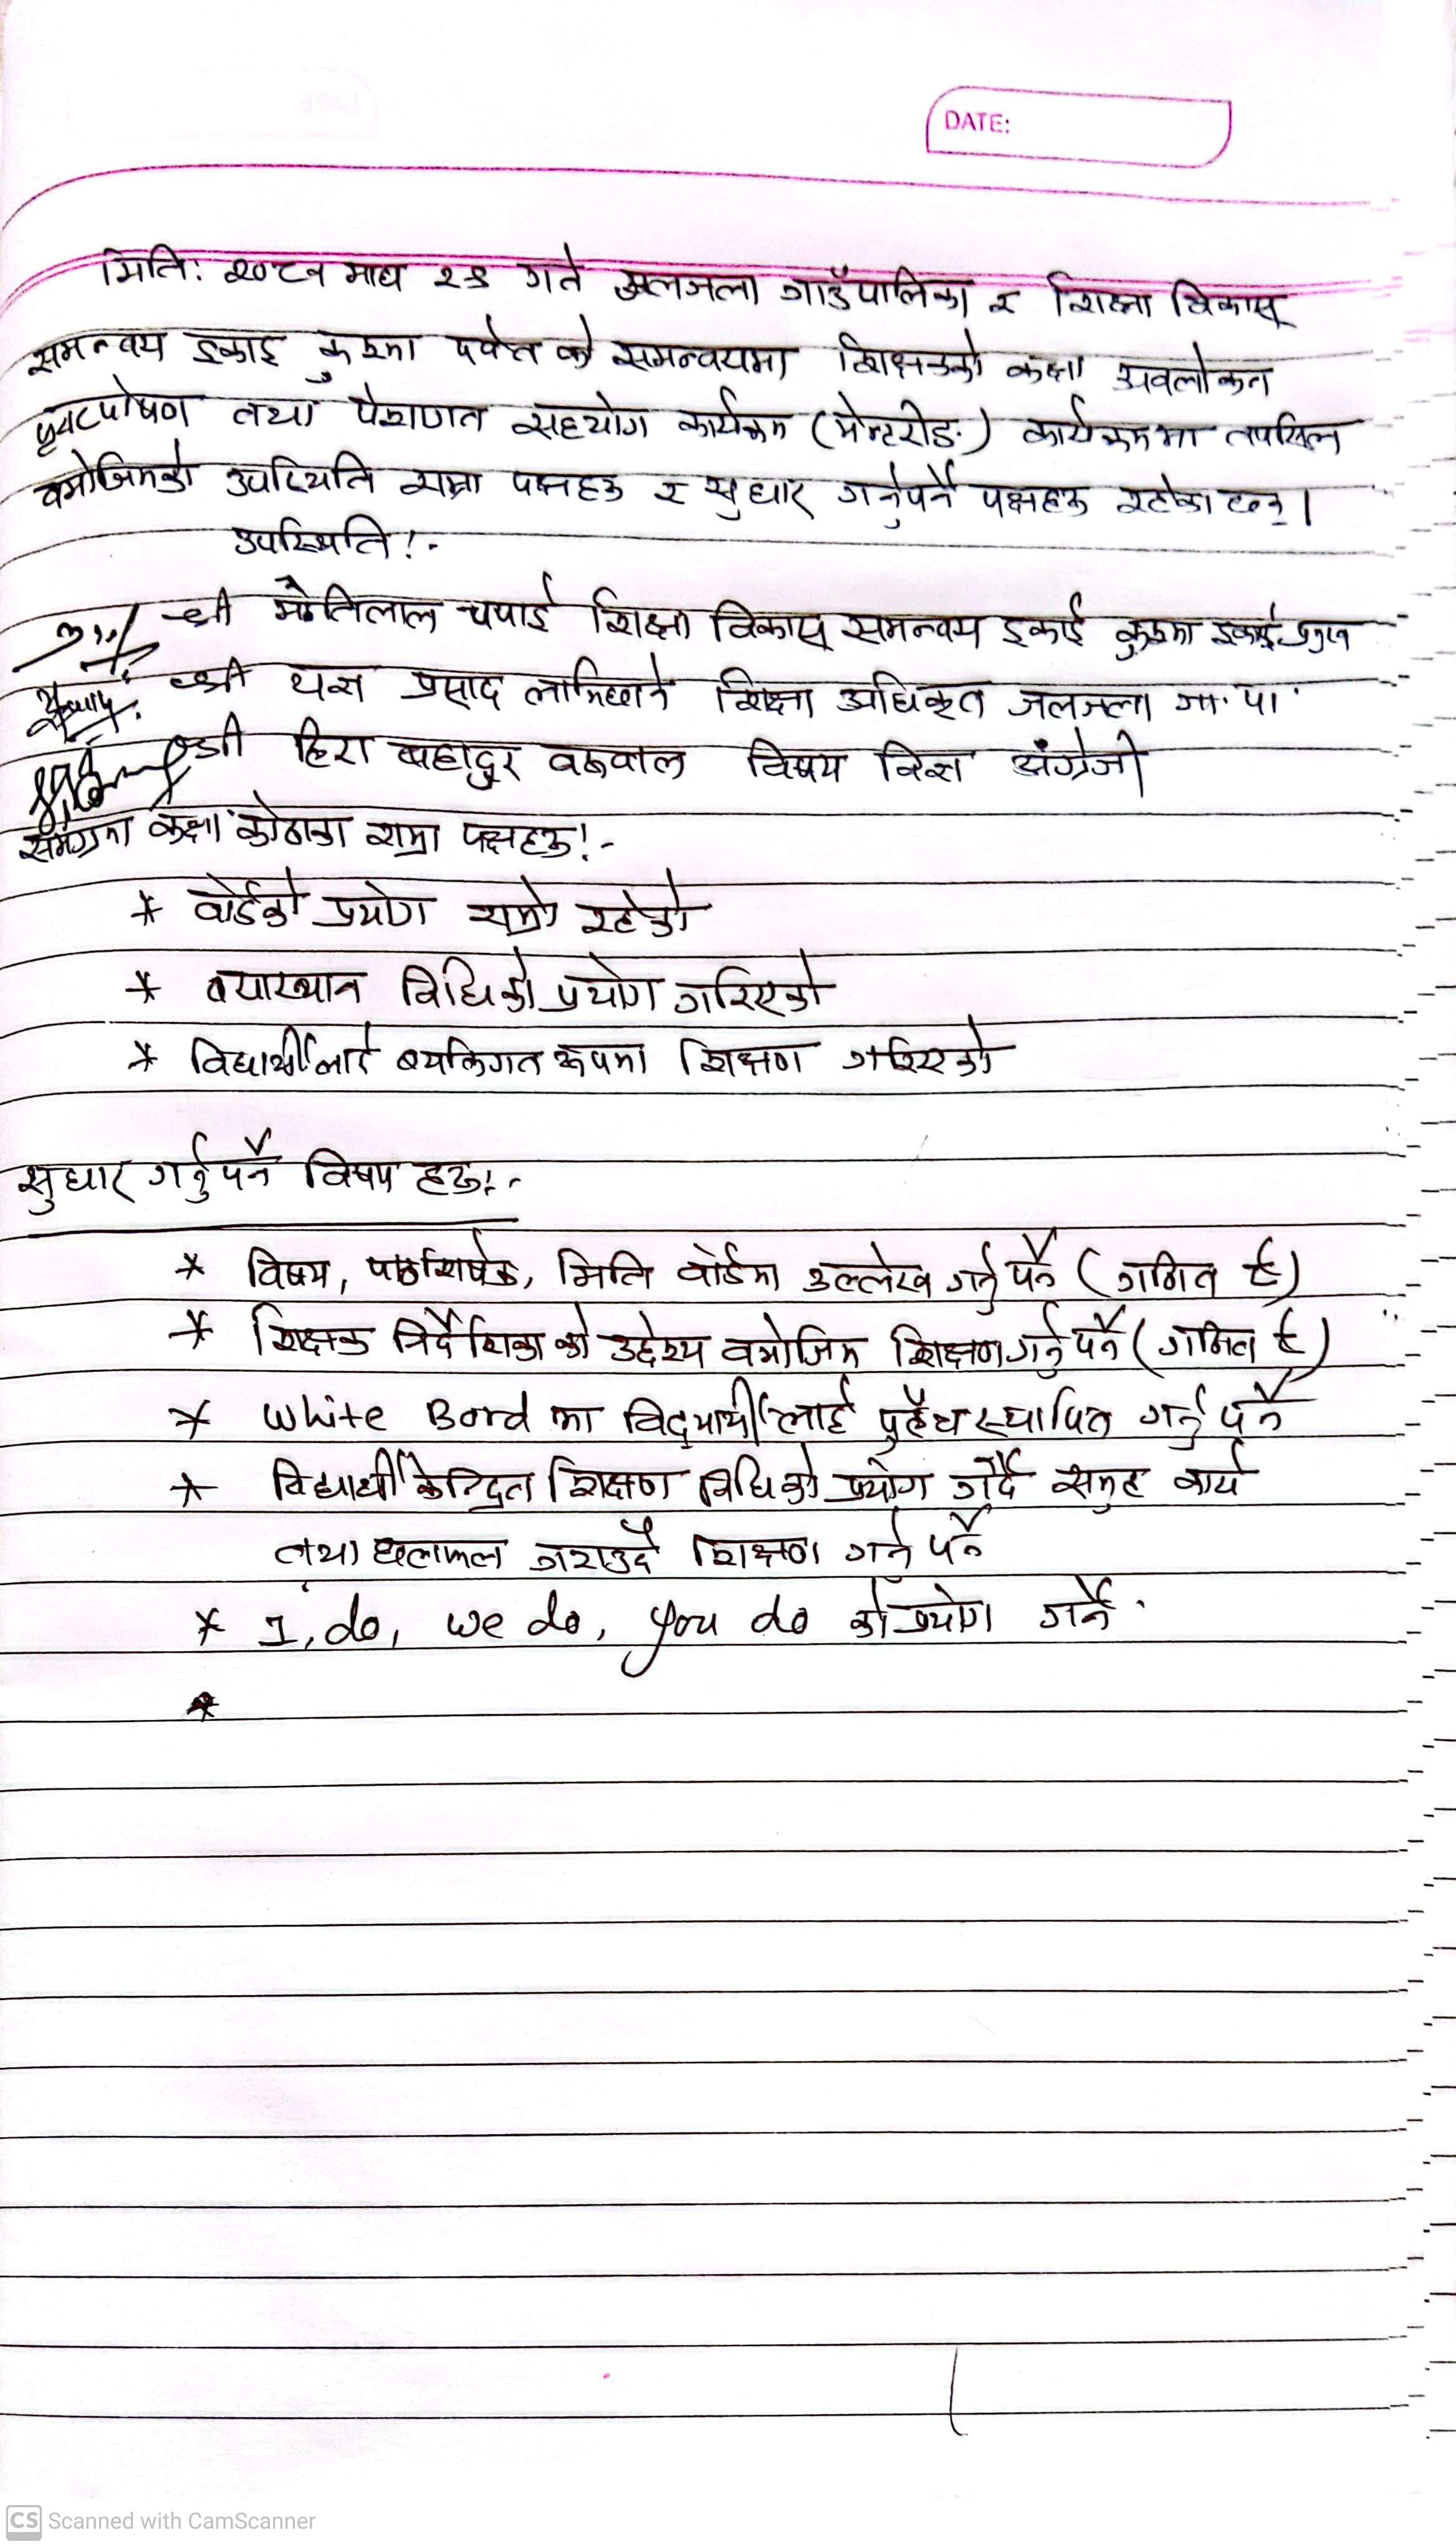 DATE:
मिति: २०८१ माघ २८ गते जलजला गाउँपालिका र शिक्षा विकास
समन्वय इकाइ कुश्मा पर्वत को समन्वयमा शिक्षकको कक्षा अवलोकन
पृष्टपोषण तथा पेशागत सहयोग कार्यक्रम (मेन्टरीङ) कार्यक्रममा तपसिल
बमोजिमको उपस्थिति राम्रा पक्षहरु र सुधार गर्नुपर्ने पक्षहरु रहेका छन् ।
उपस्थिति !-
श्री मोतिलाल चपाई शिक्षा विकास समन्वय इकाई कुश्मा इकाई प्रमुख
श्री यज्ञ प्रसाद लामिछाने शिक्षा अधिकृत जलजला गा. पा.
श्री हिरा बहादुर बरुवाल विषय विज्ञ अंग्रेजी
समग्रमा कक्षा कोठाका राम्रा पक्षहरु !-
* बोर्डको प्रयोग राम्रो रहेको
* ब्याख्यान विधिको प्रयोग गरिएको
* विद्यार्थीलाई ब्यक्तिगत रुपमा शिक्षण गरिएको
सुधार गर्नुपर्ने विषय हरु !-
* विषय, पाठशिर्षक, मिति बोर्डमा उल्लेख गर्नु पर्ने (गणित ८)
* शिक्षक निर्देशिका को उद्देश्य बमोजिम शिक्षण गर्नु पर्ने (गणित ८)
* White Bord मा विद्यार्थीलाई पुहँच स्थापित गर्नु पर्ने
* विद्यार्थी केन्द्रित शिक्षण विधिको प्रयोग गर्दै समुह कार्य
तथा छलफल गराउदै शिक्षण गर्नु पर्ने
* I, do, we do, you do को प्रयोग गर्ने .
*
CS Scanned with CamScanner